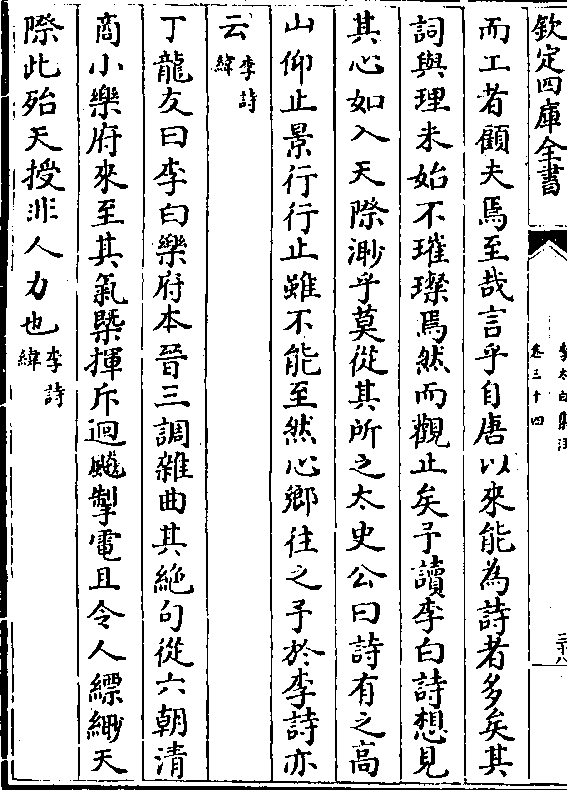 欽定四庫全書
李太白集注
卷三十四
而工者顧夫焉至哉言乎自唐以來能為詩者多矣其
詞與理未始不璀璨焉然而觀止矣予讀李白詩想見
其心如入天際渺乎莫從其所之太史公曰詩有之高
山仰止景行行止雖不能至然心鄉往之予於李詩亦
云李詩緯
丁龍友曰李白樂府本晉三調雜曲其絶句從六朝清
商小樂府來至其氣槩揮斥迴飈掣電且令人縹緲天
際此殆天授非人力也李詩緯